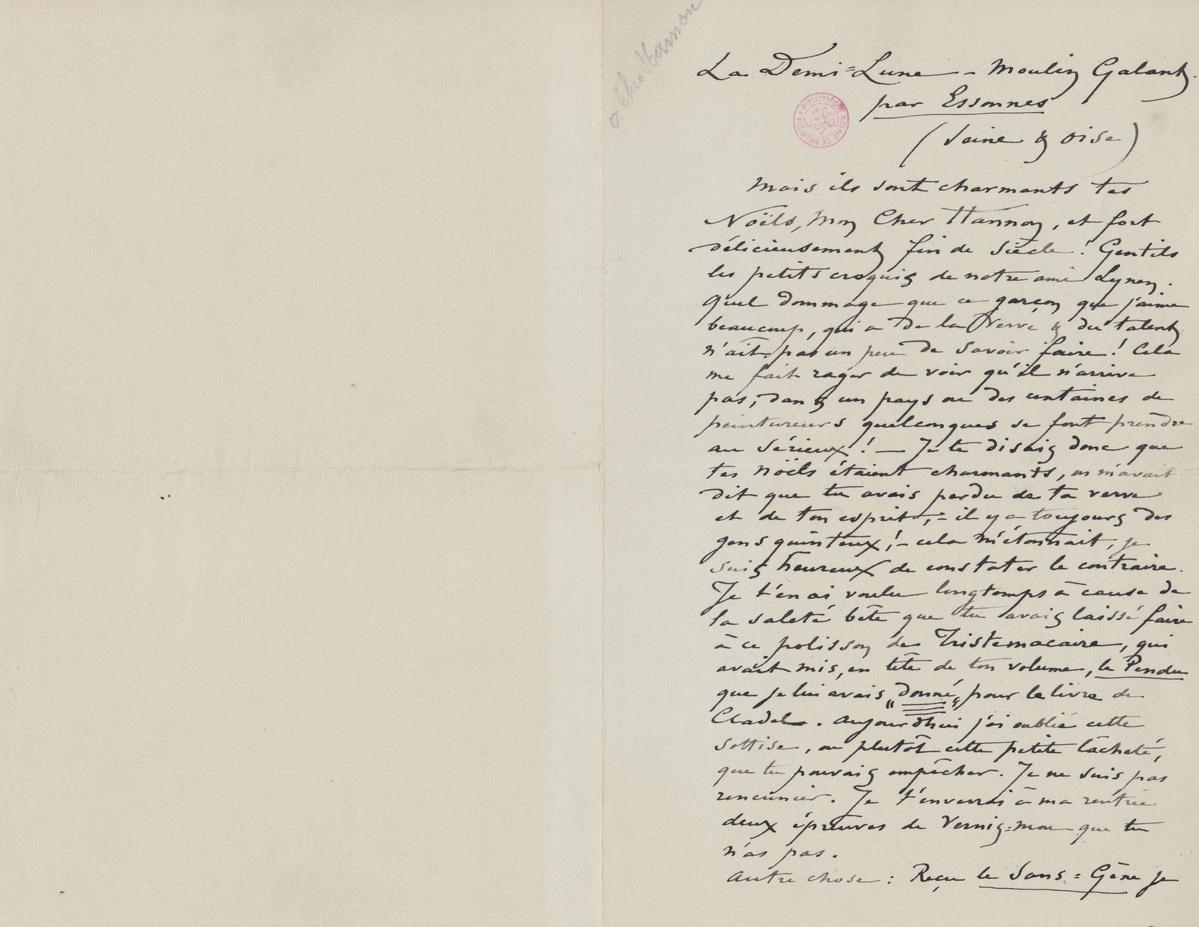 à Theo Hannon
La Demi=Lune – Moulin Galant.
par Essonnes
(Seine & Oise)
Mais ils sont charmants tes
Noëls, Mon Cher Hannon, et fort
délicieusement fin de siècle ! Gentils
les petits croquis de notre ami Lynen.
Quel dommage que ce garçon que j'aime
beaucoup, qui a de la verve & du talent
n'ait pas un peu de savoir faire ! Cela
me fait rager de voir qu'il n'arrive
pas, dans un pays où des centaines de
peintureurs quelconques se font prendre
au sérieux ! — Je te disais donc que
tes noëls étaient charmants, on m'avait
dit que tu avais perdu de ta verve
et de ton esprit, – il y a toujours des
gens quinteux ! – cela m'étonnait, je
suis heureux de constater le contraire.
Je t'en ai voulu longtemps à cause de
la saleté bête que tu avais laissé faire
à ce polisson de Tristemacaire, qui
avait mis, en tête de ton volume, le Pendu
que je lui avais „donné„ pour le livre de
Cladel. Aujourdhui j'ai oublié cette
sottise, ou plutôt cette petite lâcheté,
que tu pouvais empêcher. Je ne suis pas
rancunier. Je t'enverrai à ma rentrée
deux épreuves de Vernis=mou que tu
n'as pas.
Autre chose : Reçu le Sans=Gêne je